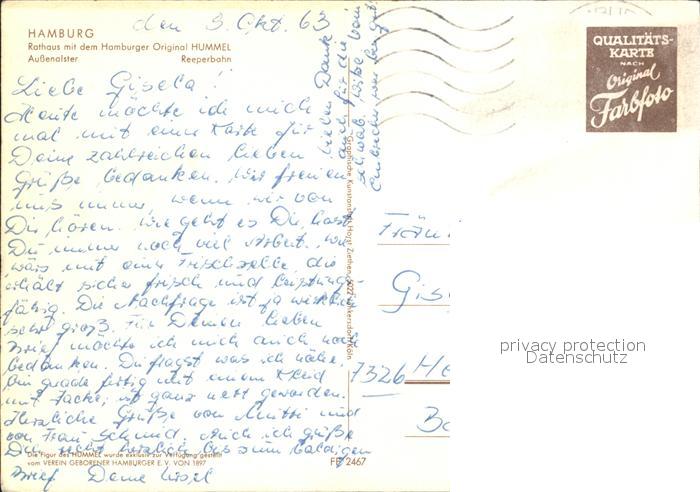 HAMBURG
Rathaus mit dem Hamburger Original HUMMEL
Außenalster Reeperbahn
den 3. Okt. 63
Liebe Gisela!
Heute möchte ich mich
mal mit einer Karte für
Deine zahlreichen lieben
Grüße bedanken. Wir freuen
uns immer, wenn wir von
Dir hören. Wie geht es Dir, hast
Du immer noch viel Arbeit. Wie
wärs mit einer Frischzelle, die
erhält sicher frisch und leistungs-
fähig. Die Nachfrage ist ja wirklich
sehr groß. Für Deinen lieben
Brief möchte ich mich auch noch
bedanken. Du fragst was ich nähe.
Bin grade fertig mit einem Kleid
mit Jacke, ist ganz nett geworden.
Herzliche Grüße von Mutti und
von Frau Schmid. Auch ich grüße
Dich recht herzlich bis zum baldigen
Brief Deine
Lieben Dank
auch für die
Grüße vom
QUALITÄTS-
KARTE
NACH
Original
Farbfoto
Fräu
Gis
7326 He
Ba
privacy protection
Datenschutz
Die Figur des HUMMEL wurde exklusiv zur Verfügung gestellt
vom VEREIN GEBORENER HAMBURGER E. V. VON 1897
FE 2467